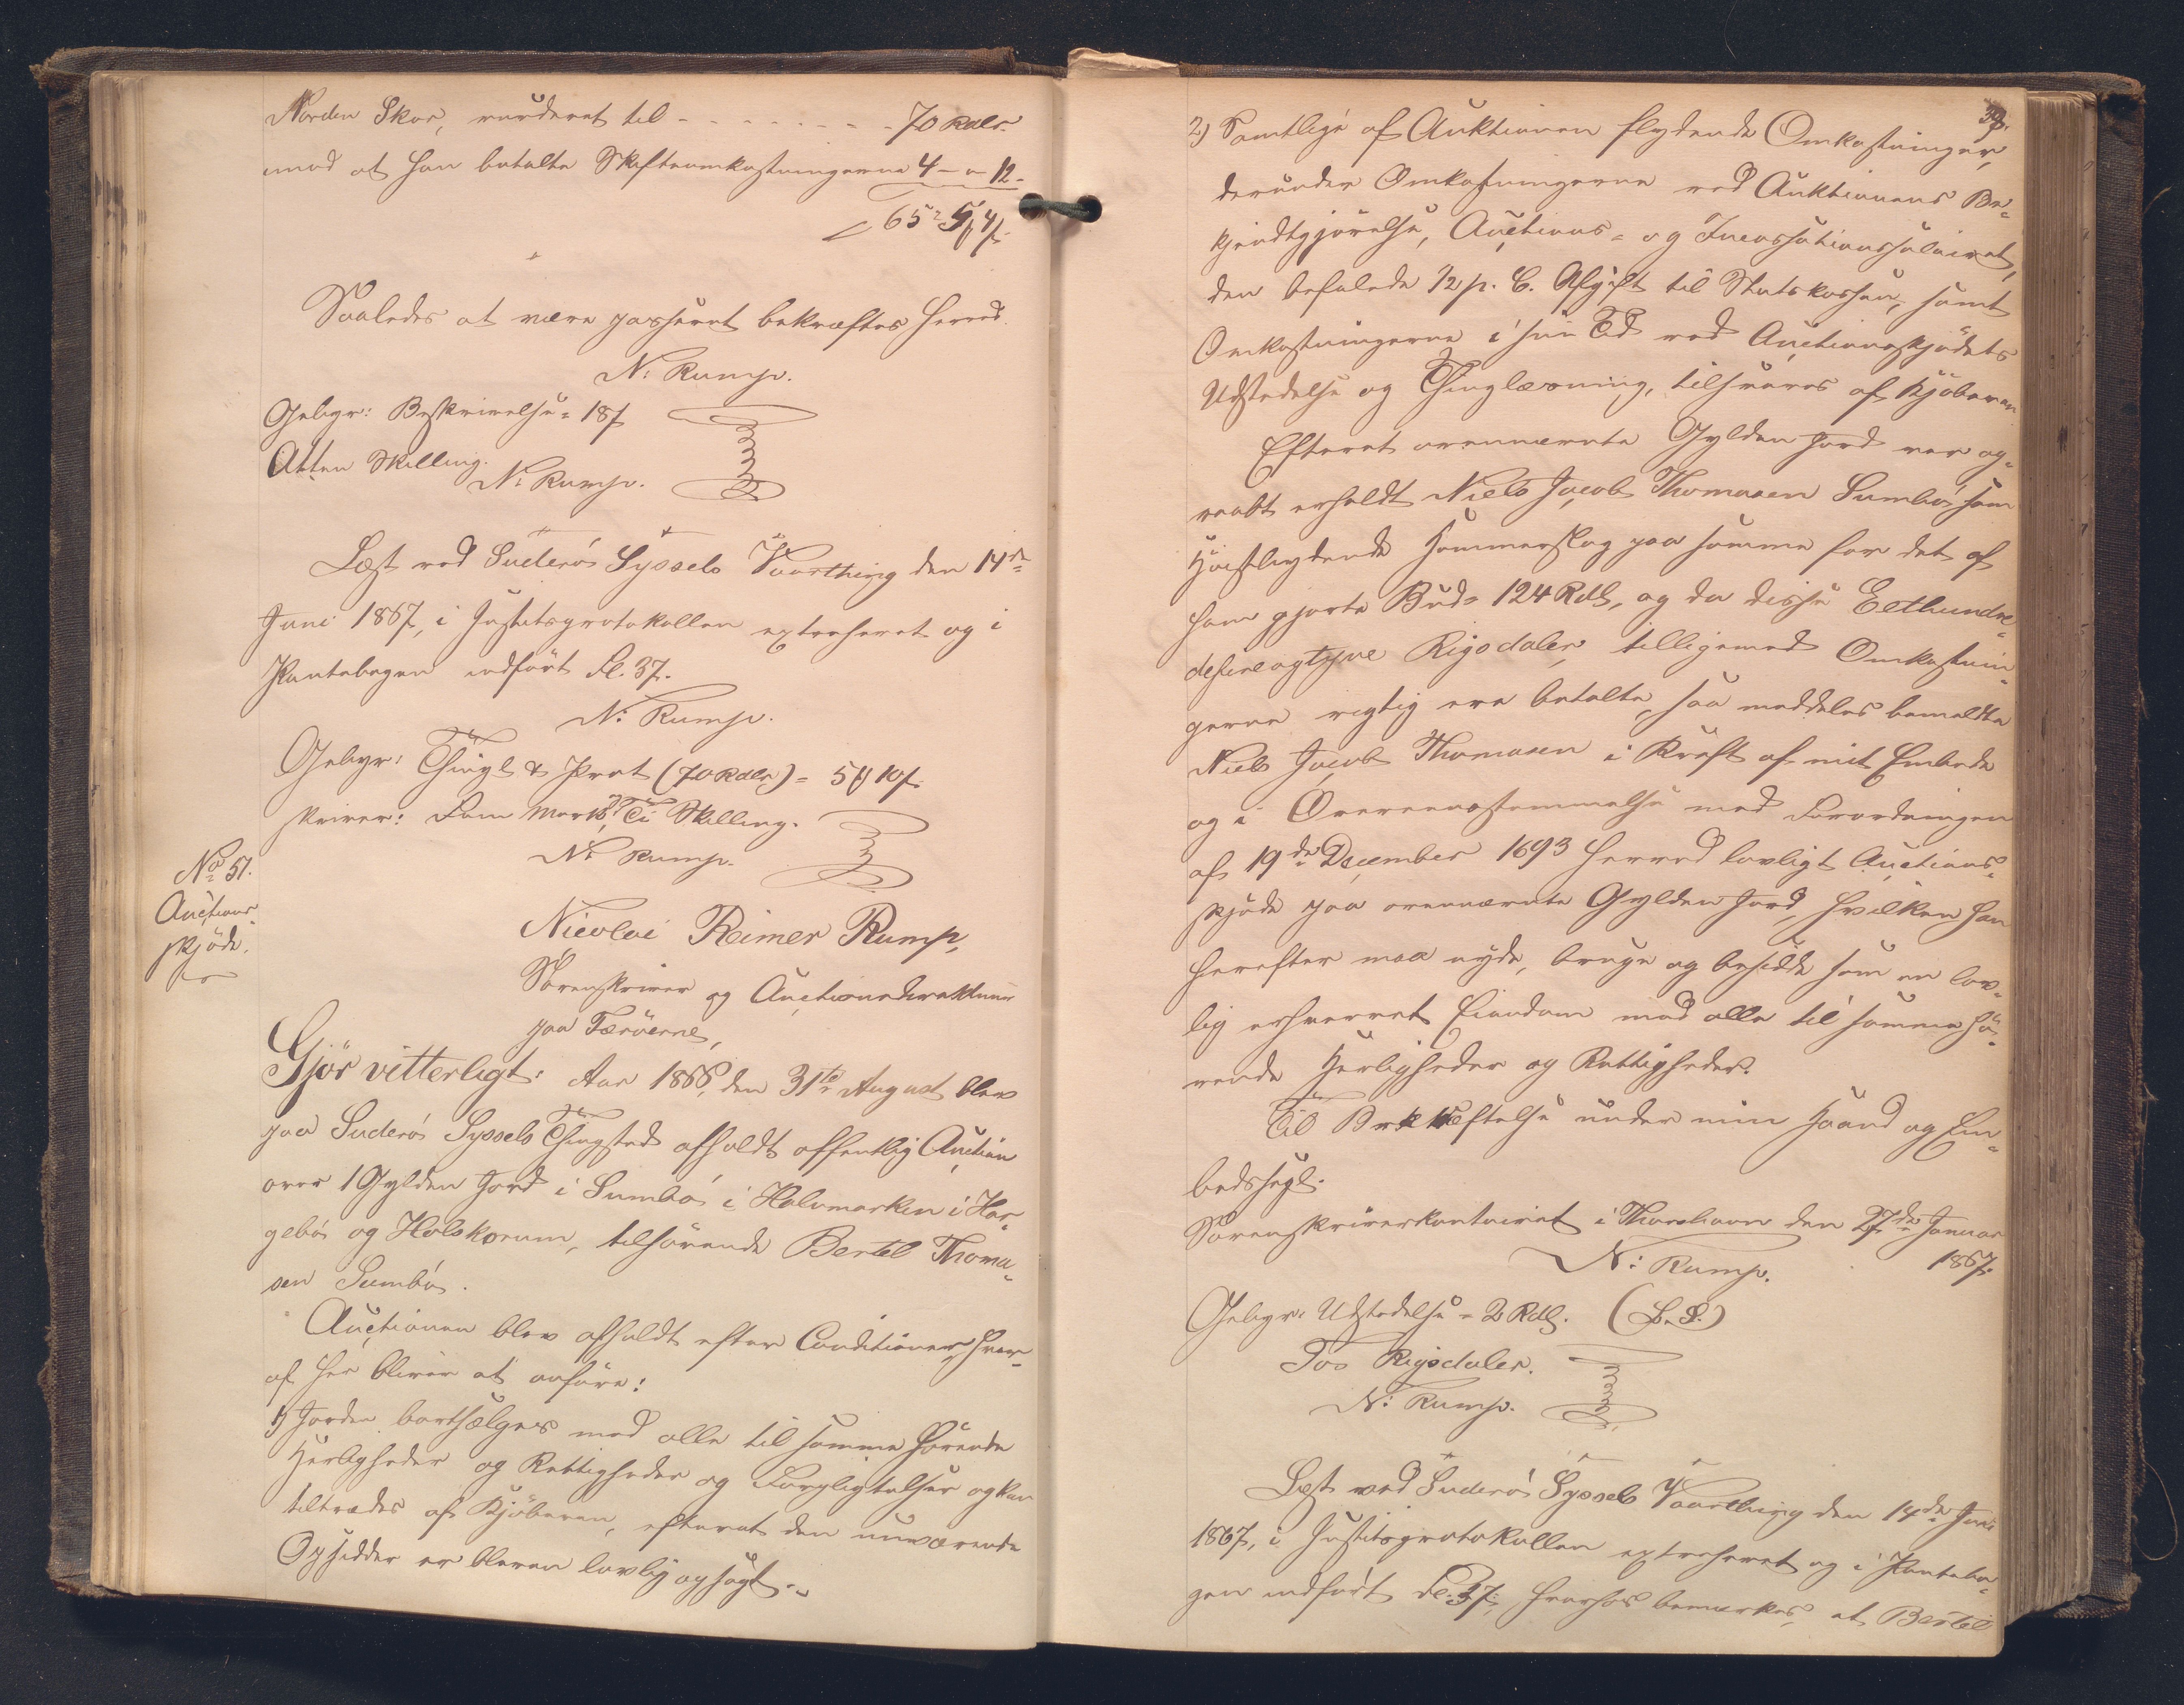 Norden Skor, vurderet til - - - - - - - - 70 Rdlr.
mod at han betalte Skifteomkostningerne 4 - " - 12 -
65 " 5 # 4 ß.
Saaledes at være passeret bekræftes herved.
N: Rump.
Gebyr: Beskrivelse = 18 ß
Atten Skilling.
N: Rump.
Læst ved Suderö Syssels Vaarthing den 14de
Juni 1867, i Justitsprotokollen extraheret og i
Pantebogen indført Fl. 37.
N: Rump.
Gebyr: Thingl & Prot (70 Rdlr) = 5 # 10 ß.
skriver: Fem Mark, Ti Skilling.
N: Rump.
No 51.
Auctions-
skjöde.
Nicolai Reimer Rump,
Sorenskriver og Auctionsdirekteur
paa Færöerne,
Gjör vitterligt: Aar 1866, den 31te August blev
paa Suderö Syssels Thingsted afholdt offentlig Auction
over 1 Gylden Jord i Sumbö i Halvmarken i Hør-
gebö og Holskorum, tilhörende Bertel Thoma-
sen Sumbö.
Auctionen blev afholdt efter Conditioner, hvor-
af her bliver at anföre:
1) Jorden bortsælges med alle til samme hörende
Herligheder og Rettigheder og Forpligtelser og kan
tiltrædes af Kjöberen, efterat den nuværende
Opsidder er bleven lovlig opsagt.
39.
2) Samtlige af Auktionen flydende Omkostninger,
derunder Omkostningerne ved Auktionens Be-
kjendtgjörelse, Auctions- og Incassationssalairet,
den befalede 1/2 p. C. Afgift til Statskassen, samt
Omkostningerne i sin Tid ved Auctionsskjödets
Udstedelse og Thinglæsning, tilsvares af Kjöberen
Efterat ovennævnte Gylden Jord var op-
raabt erholdt Niels Jacob Thomasen Sumbö som
Höistbydende Hammerslag paa samme for det af
ham gjorte Bud = 124 Rdl, og da disse Eethundre-
defireogtyve Rigsdaler, tilligemed Omkostnin-
gerne rigtig ere betalte, saa meddeles bemeldte
Niels Jacob Thomasen i Kraft af mit Embede
og i Overeensstemmelse med Forordningen
af 19de December 1693 herved lovligt Auctions-
skjöde paa ovennævnte Gylden Jord, hvilken han
herefter maa nyde, bruge og besidde som en lov-
lig erhvervet Eiendom med alle til samme hö-
rende Herligheder og Rettigheder.
Til Bekræftelse under min Haand og Em-
bedssegl.
Sorenskriverkontoiret i Thorshavn den 27de Januar
1867.
N: Rump.
Gebyr: Udstedelse = 2 Rdl. (L. S.)
Too Rigsdaler.
N: Rump.
Læst ved Suderö Syssels Vaarthing den 14de Juni
1867, i Justitsprotokollen extraheret og i Pantebo-
gen indfört Fl. 37, hvorhos bemærkes, at Bertel